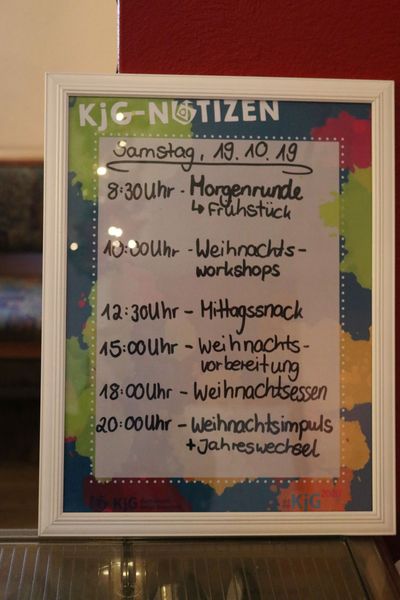 KjG-NOTIZEN
Samstag, 19.10.19
8:30 Uhr - Morgenrunde
↳ Frühstück
10:00 Uhr - Weihnachts-
workshops
12:30 Uhr - Mittagssnack
15:00 Uhr - Weihnachts-
vorbereitung
18:00 Uhr - Weihnachtsessen
20:00 Uhr - Weihnachtsimpuls
+ Jahreswechsel
KjG
#KjG